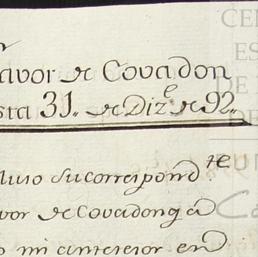 avor de Covadon
sta 31,, de Diz.e de 92,,
luio su correspond.te
vor de Covadonga
o mi antecesor en